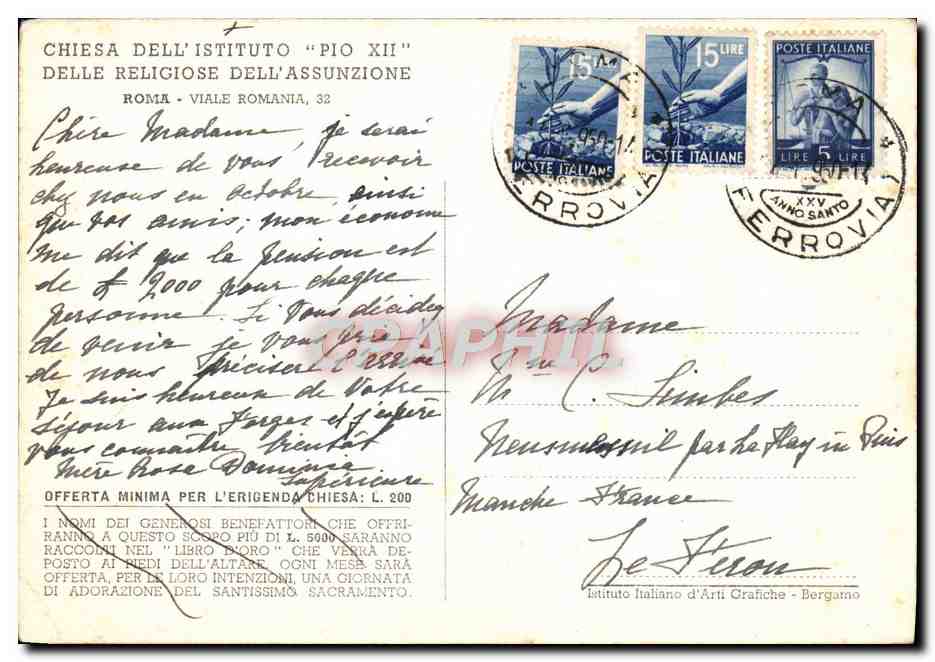 CHIESA DELL'ISTITUTO "PIO XII"
DELLE RELIGIOSE DELL'ASSUNZIONE
ROMA - VIALE ROMANIA, 32
Chère Madame, je serai
heureuse de vous recevoir
chez nous en octobre, ainsi
que vos amis; mon économe
me dit que la pension est
de 2000 pour chaque
personne. Si vous décidez
de venir je vous prie
de nous préciser l'arrivée
Je suis heureux de votre
séjour aux Forges et j'espère
vous connaître bientôt
Mère Rosa
Supérieure
OFFERTA MINIMA PER L'ERIGENDA CHIESA: L. 200
I NOMI DEI GENEROSI BENEFATTORI CHE OFFRI-
RANNO A QUESTO SCOPO PIÙ DI L. 5000 SARANNO
RACCOLTI NEL "LIBRO D'ORO" CHE VERRÀ DE-
POSTO AI PIEDI DELL'ALTARE. OGNI MESE SARÀ
OFFERTA, PER LE LORO INTENZIONI, UNA GIORNATA
DI ADORAZIONE DEL SANTISSIMO SACRAMENTO.
15
POSTE ITALIANE
15 LIRE
POSTE ITALIANE
POSTE ITALIANE
LIRE 5 LIRE
FERROVIA
XXV
ANNO SANTO
FERROVIA
CPAPHIL
Madame
Mme C. Simbes
par La Hay
Manche France
Istituto Italiano d'Arti Grafiche - Bergamo